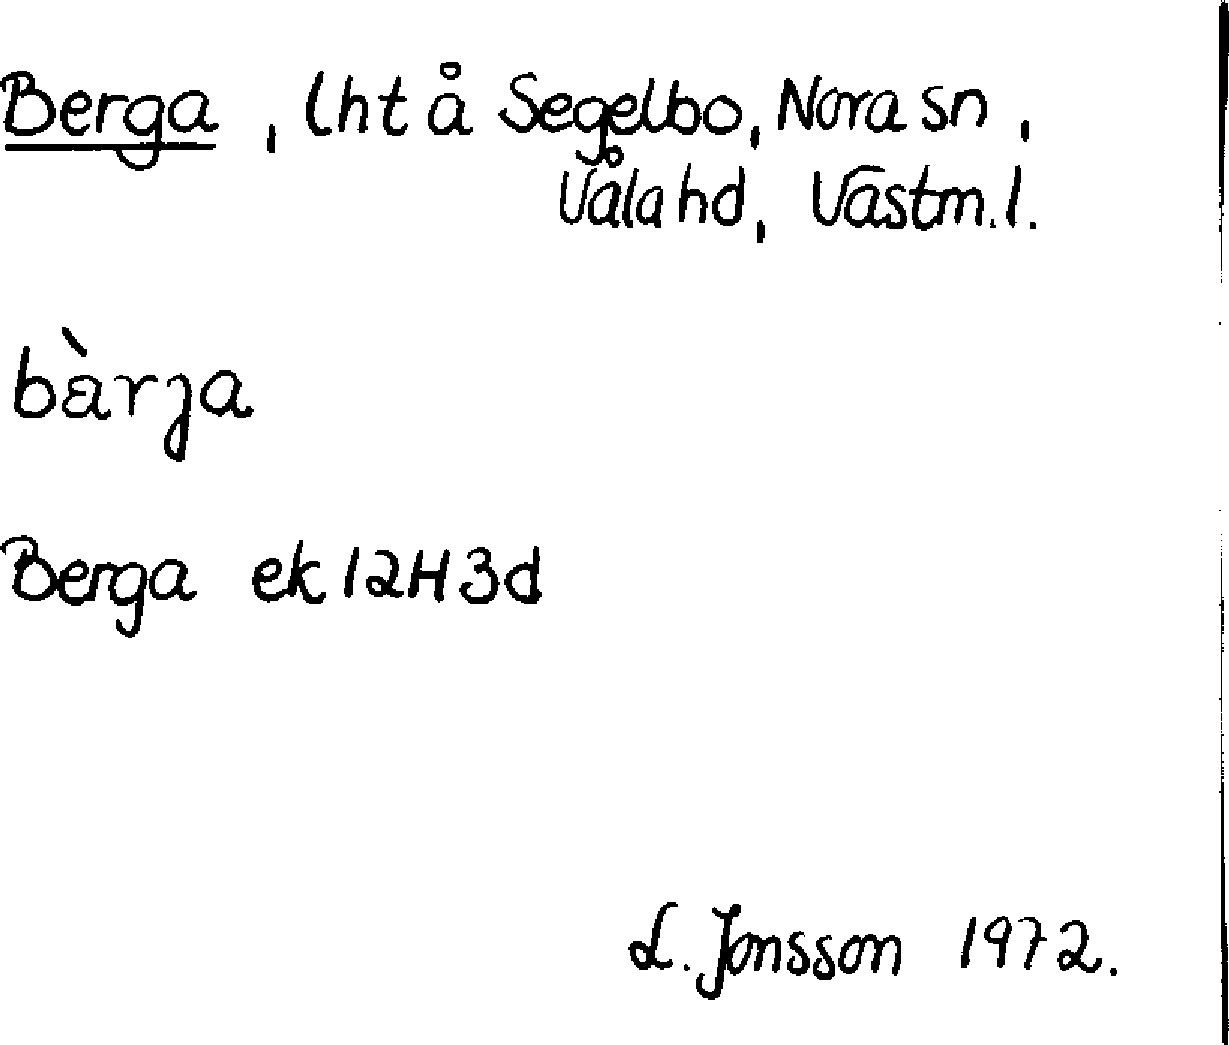 Berga, lht å Segelbo, Nora sn,
Våla hd, Västm. l.
bàrȷa
Berga ek 12H3d
L. Jonsson 1972.